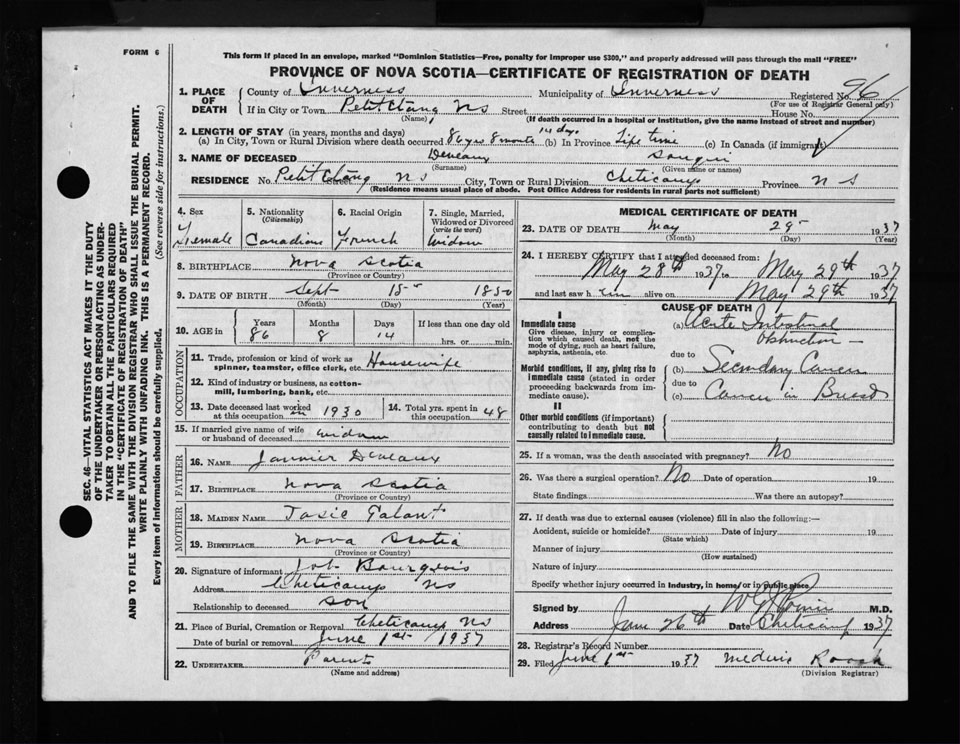 FORM 6
This form if placed in an envelope, marked "Dominion Statistics—Free, penalty for improper use $300," and properly addressed will pass through the mail "FREE"
PROVINCE OF NOVA SCOTIA—CERTIFICATE OF REGISTRATION OF DEATH
1. PLACE OF DEATH
County of Inverness Municipality of Inverness Registered No. 96
(For use of Registrar General only)
If in City or Town Petit Etang NS Street House No.
(Name) (If death occurred in a hospital or institution, give the name instead of street and number)
2. LENGTH OF STAY (in years, months and days)
(a) In City, Town or Rural Division where death occurred 86 yrs 8 months 14 dys (b) In Province Life time (c) In Canada (if immigrant)
3. NAME OF DECEASED Deveaux
(Surname) (Given name or names)
RESIDENCE No. Petit Etang Street NS City, Town or Rural Division Cheticamp Province N S
(Residence means usual place of abode. Post Office Address for residents in rural parts not sufficient)
4. Sex
Female
5. Nationality
(Citizenship)
Canadian
6. Racial Origin
French
7. Single, Married, Widowed or Divorced
(write the word)
Widow
8. BIRTHPLACE Nova Scotia
(Province or Country)
9. DATE OF BIRTH Sept 15 1850
(Month) (Day) (Year)
10. AGE in
Years Months Days If less than one day old
86 8 14 hrs. or min.
OCCUPATION
11. Trade, profession or kind of work as spinner, teamster, office clerk, etc. Housewife
12. Kind of industry or business, as cotton-mill, lumbering, bank, etc.
13. Date deceased last worked at this occupation in 1930
14. Total yrs. spent in this occupation 48
15. If married give name of wife or husband of deceased widow
FATHER
16. NAME Deveaux
17. BIRTHPLACE Nova Scotia
(Province or Country)
MOTHER
18. MAIDEN NAME
19. BIRTHPLACE Nova Scotia
(Province or Country)
20. Signature of informant Job Bourgeois
Address Cheticamp NS
Relationship to deceased son
21. Place of Burial, Cremation or Removal Cheticamp NS
Date of burial or removal June 1st 1937
22. UNDERTAKER Parent
(Name and address)
MEDICAL CERTIFICATE OF DEATH
23. DATE OF DEATH May 29 1937
(Month) (Day) (Year)
24. I HEREBY CERTIFY that I attended deceased from:
May 28th 1937 to May 29th 1937
and last saw h alive on May 29th 1937
CAUSE OF DEATH
I
Immediate cause
Give disease, injury or complication which caused death, not the mode of dying, such as heart failure, asphyxia, asthenia, etc.
(a) Acute Intestinal Obstruction
due to
Morbid conditions, if any, giving rise to immediate cause (stated in order proceeding backwards from immediate cause).
(b) Secondary Cancer
due to
(c) Cancer in Breast
II
Other morbid conditions (if important) contributing to death but not causally related to immediate cause.
25. If a woman, was the death associated with pregnancy? No
26. Was there a surgical operation? No Date of operation 19
State findings Was there an autopsy?
27. If death was due to external causes (violence) fill in also the following:—
Accident, suicide or homicide? Date of injury 19
(State which)
Manner of injury
(How sustained)
Nature of injury
Specify whether injury occurred in industry, in home, or in public place
Signed by M.D.
Address June 26th Date Cheticamp 1937
28. Registrar's Record Number
29. Filed June 1st 1937
(Division Registrar)
SEC. 46—VITAL STATISTICS ACT MAKES IT THE DUTY
OF THE UNDERTAKER OR PERSON ACTING AS UNDER-
TAKER TO OBTAIN ALL THE PARTICULARS REQUIRED
IN THE "CERTIFICATE OF REGISTRATION OF DEATH"
AND TO FILE THE SAME WITH THE DIVISION REGISTRAR WHO SHALL ISSUE THE BURIAL PERMIT.
WRITE PLAINLY WITH UNFADING INK. THIS IS A PERMANENT RECORD.
Every item of information should be carefully supplied. (See reverse side for instructions.)